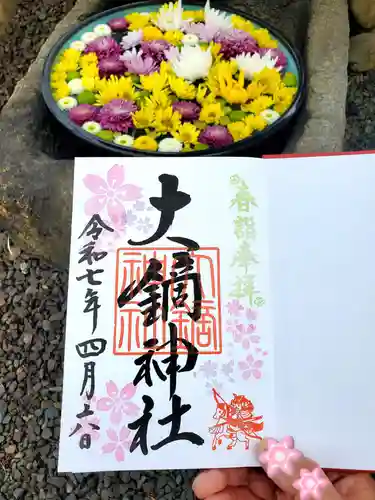 春詣奉拝
大鏑神社
令和七年四月六日